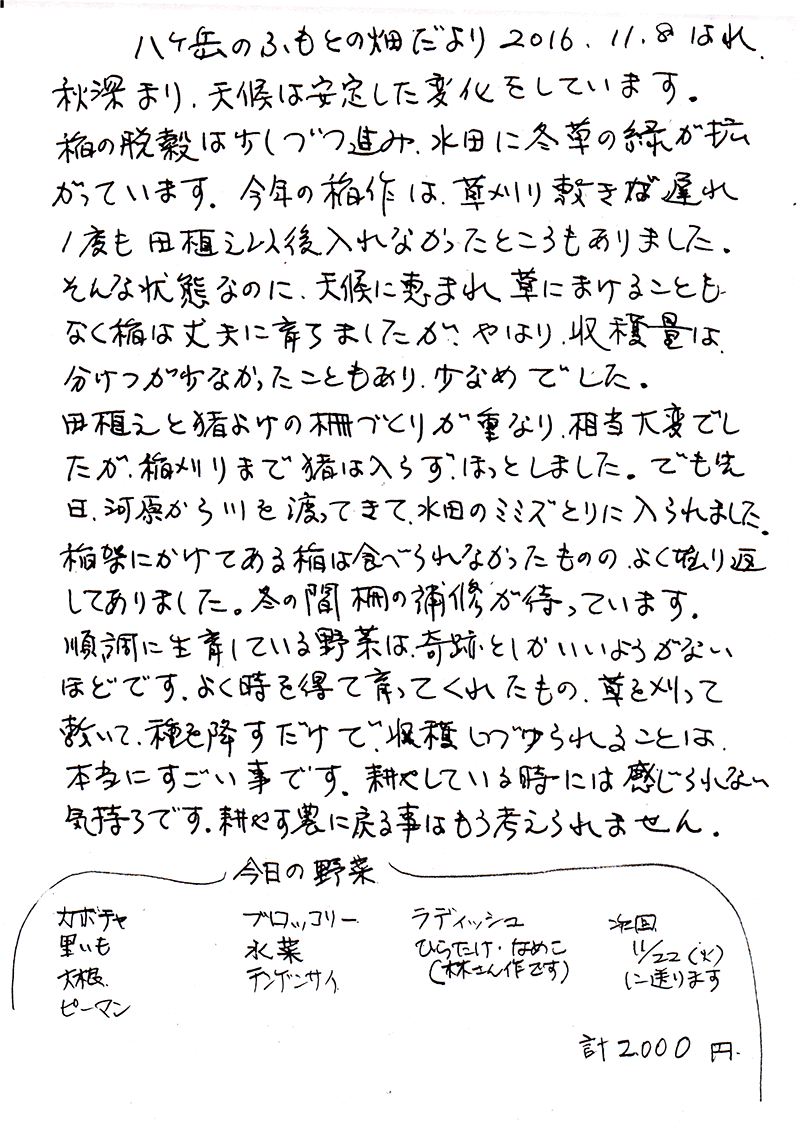 八ヶ岳のふもとの畑だより 2016.11.8 はれ
秋深まり、天候は安定した変化をしています。
稲の脱穀は少しづつ進み、水田に冬草の緑が拡
がっています。今年の稲作は、草刈り敷きが遅れ
1度も田植え以後入れなかったところもありました。
そんな状態なのに、天候に恵まれ、草にまけることも
なく稲は丈夫に育ちましたが、やはり、収穫量は、
分けつが少なかったこともあり、少なめでした。
田植えと猪よけの柵づくりが重なり、相当大変でし
たが、稲刈りまで猪は入らず、ほっとしました。でも先
日、河原から川を渡ってきて、水田のミミズとりに入られました。
稲架にかけてある稲は食べられなかったものの、よく掘り返
してありました。冬の間柵の補修が待っています。
順調に生育している野菜は、奇跡としかいいようがない
ほどです。よく時を得て育ってくれたもの、草を刈って
敷いて、種を降すだけで、収穫しつづけられることは、
本当にすごい事です。耕やしている時には感じられない
気持ちです。耕やす農に戻る事はもう考えられません。
今日の野菜
カボチャ ブロッコリー ラディッシュ 次回
里いも 水菜 ひらたけ・なめこ 11/22(火)
大根 テンドンサイ (林さん作です) に送ります
ピーマン
計2,000円.